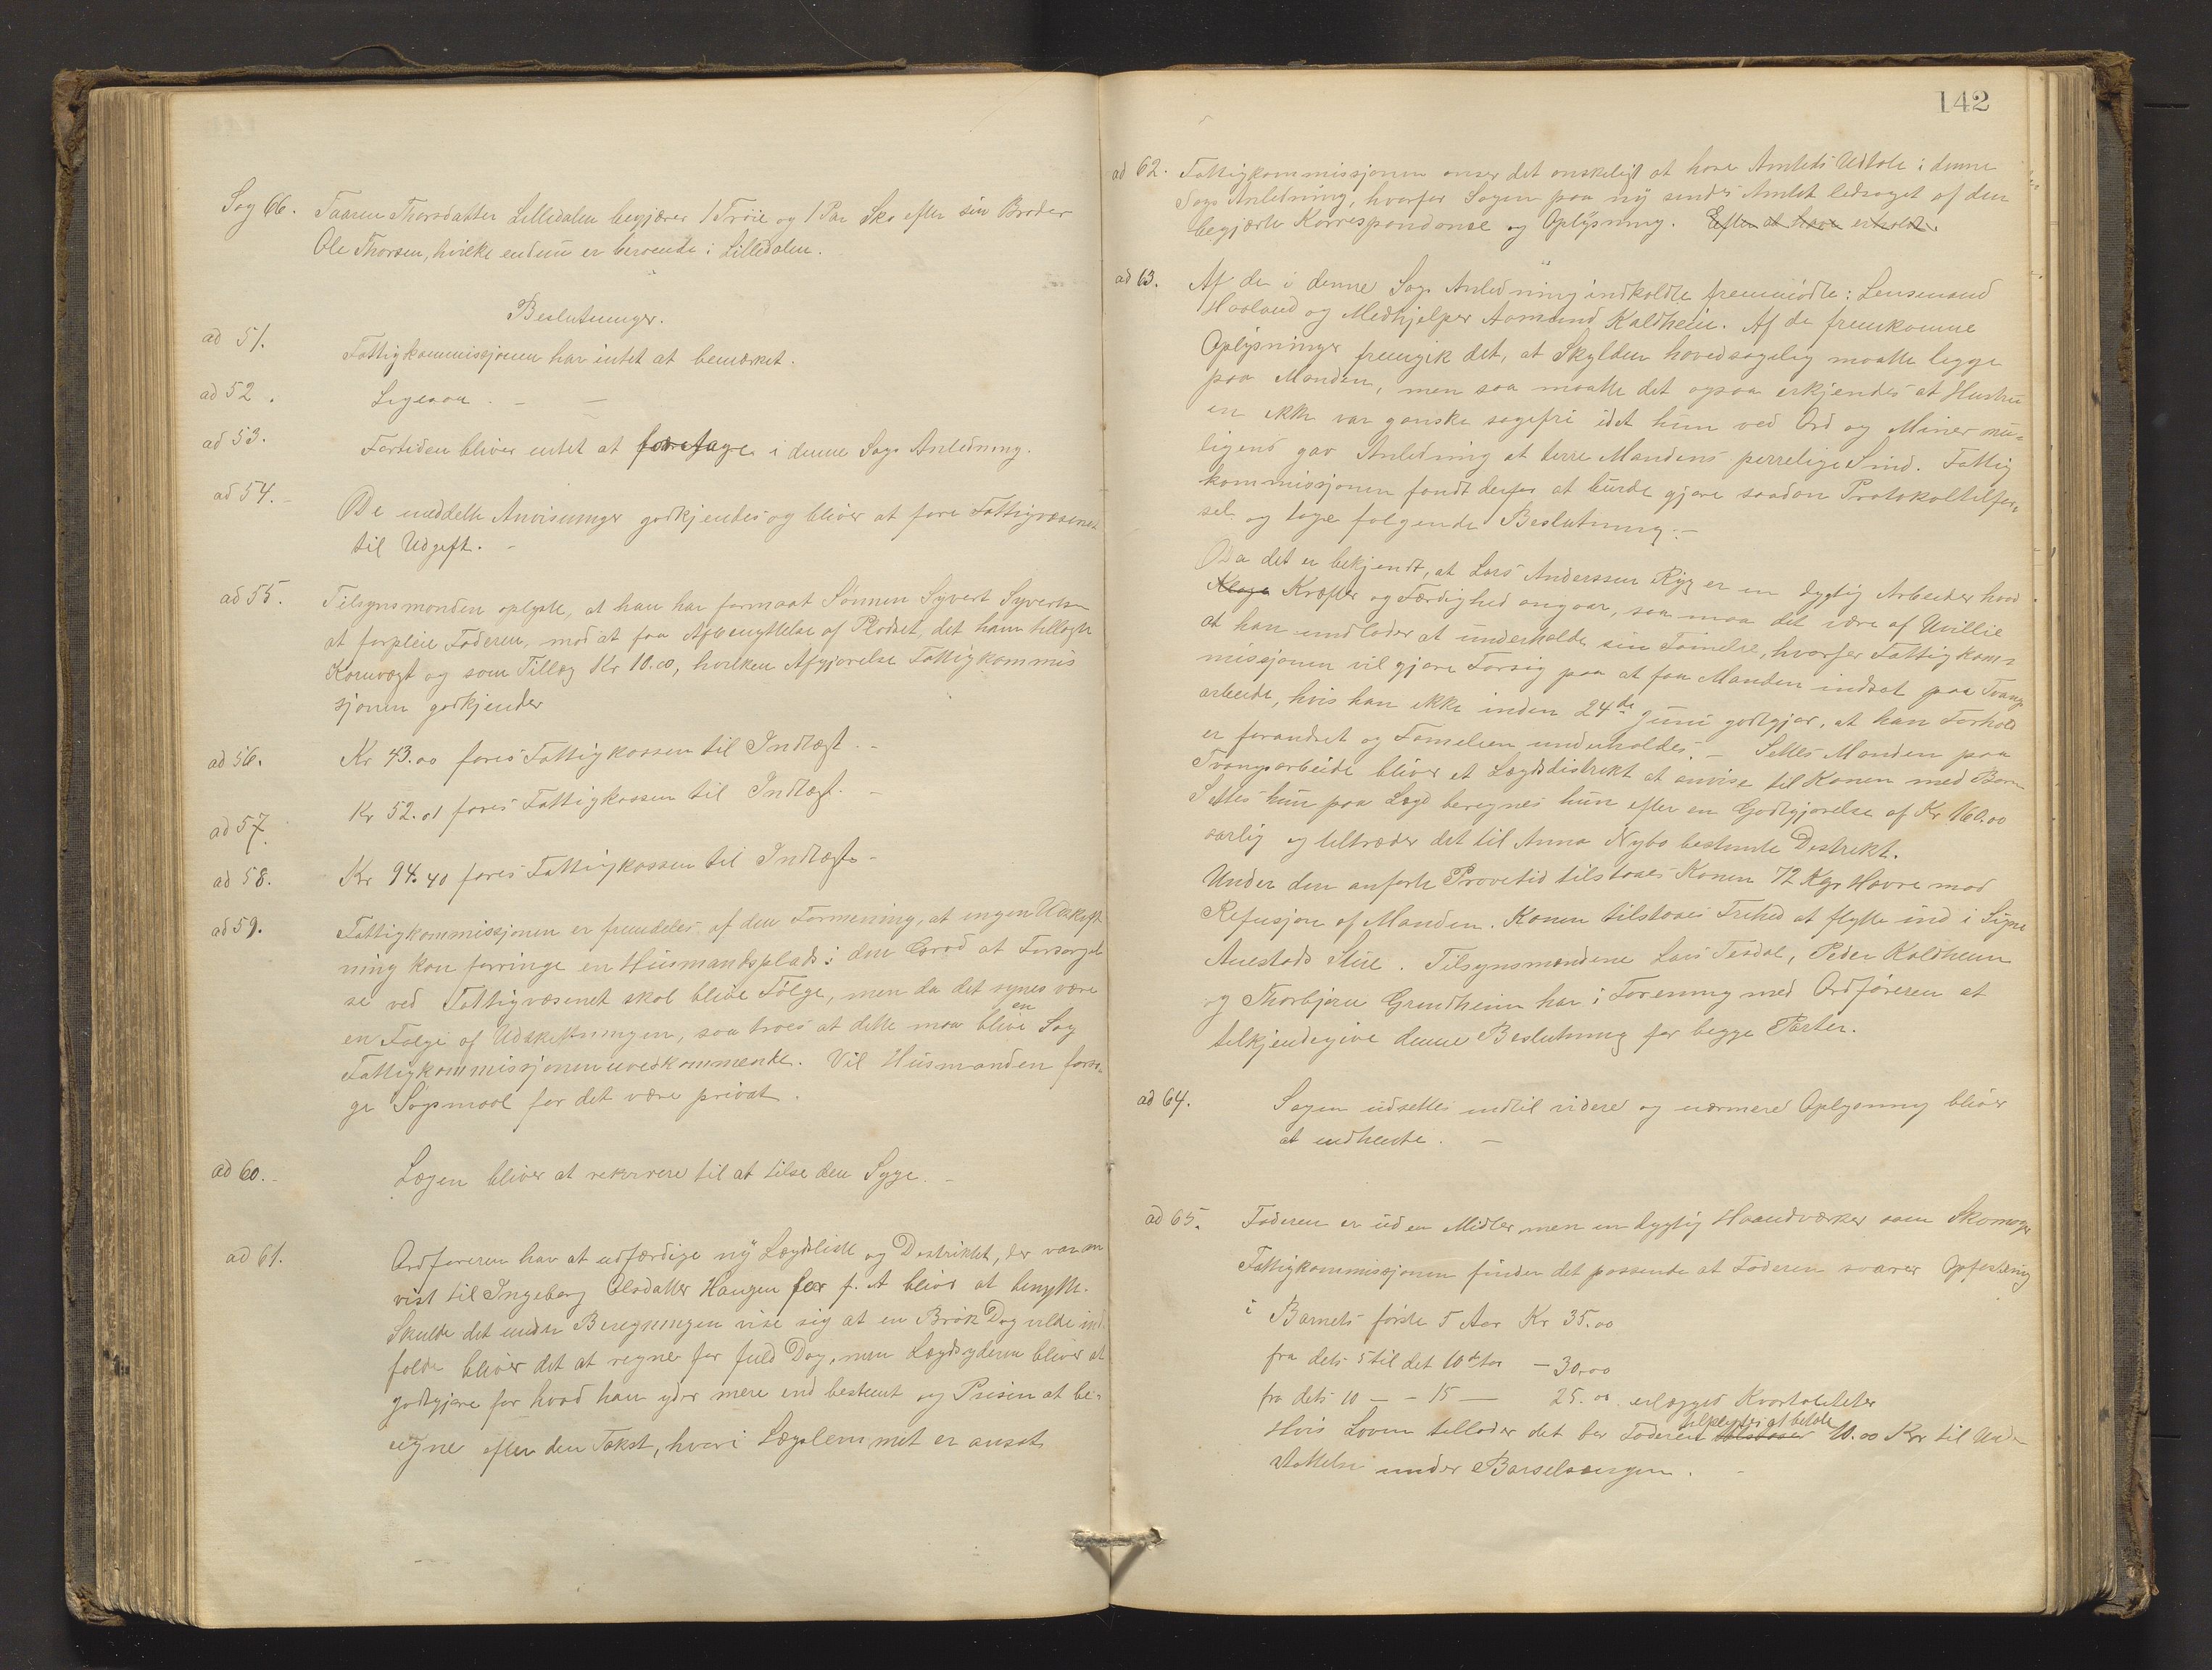 Sag 66. Taaren Thorsdatter Lilledalen begjærer 1 Trøie og 1 Par Sko efter sin Broder
Ole Thorsen, hvilke endnu er beroende i Lilledalen.
Beslutninger.
ad 51. Fattigkommissjonen har intet at bemærket.
ad 52. Ligesaa. — —
ad 53. Fortiden bliver intet at foretage i denne Sags Anledning.
ad 54. De meddelte Anvisninger godkjendes og bliver at føre Fattigvæsenet
til Udgift. —
ad 55. Tilsynsmanden oplyste, at han har formaat Sønnen Syvert Syvertsen
at forpleie Faderen, mod at faa Afbenyttelse af Pladset, det ham tillagte
Kornvægt og som Tillæg Kr 10.00, hvilken Afgjørelse Fattigkommis
sjonen godkjender
ad 56. Kr 43.00 føres Fattigkassen til Indtægt. —
ad 57. Kr 52.01 føres Fattigkassen til Indtægt. —
ad 58. Kr 94.40 føres Fattigkassen til Indtægt —
ad 59. Fattigkommissjonen er fremdeles af den Formening, at ingen Udskift
ning kan forringe en Husmandsplads i den Grad at Forsørgel
se ved Fattigvæsenet skal blive Følge, men da det synes være
en Følge af Udskiftningen, saa troes at dette maa blive en Sag
Fattigkommissjonen uvedkommende. Vil Husmanden forsø-
ge Søgsmaal faar det være privat.
ad 60. Lægen bliver at rekvirere til at tilse den Syge. —
ad 61. Ordføreren har at udfærdige ny Lægdsliste og Destriktet, der var an
vist til Ingeborg Olsdatter Haugen for f. A bliver at benytte.
Skulde det under Beregningen vise sig at en Brøk Dag vilde ind
falde bliver det at regne for fuld Dag, men Lægdsyderen bliver at
godtgjøre for hvad han yder mere end bestemt og Prisen at be-
regne efter den Takst, hvori Lægslemmet er ansat
142
ad 62. Fattigkommissjonen anser det ønskeligt at have Amtets Udtale i denne
Sags Anledning, hvorfor Sagen paa ny sendes Amtet ledsaget af den
begjærte Korrespondance og Oplysning. Efter at have erholdt.
ad 63. Af de i denne Sags Anledning indkaldte fremmødte: Lensmand
Haaland og Medhjelper Aamund Kaldheim. Af de fremkomne
Oplysninger fremgik det, at Skylden hovedsagelig maatte ligge
paa Manden, men saa maatte det ogsaa erkjendes at Hustru
en ikke var ganske sagefri idet hun ved Ord og Miner mu-
ligens gav Anledning at terre Mandens pirrelige Sind. Fattig
kommissjonen fandt derfor at burde gjøre saadan Protokoltilfør-
sel og tage følgende Beslutning: —
Da det er bekjendt, at Lars Anderssen Ryg er en dygtig Arbeider hvad
Kræfter og Færdighed angaar, saa maa det være af Uvillie
at han undlader at underholde sin Familie, hvorfor Fattigkom-
missjonen vil gjøre Forsøg paa at faa Manden indsat paa Tvangs
arbeide, hvis han ikke inden 24de Juni godtgjør, at han Forhold
er forandret og Familien underholdes. — Settes Manden paa
Tvangsarbeide bliver et Lægdsdistrikt at anvise til Konen med Barn
Settes hun paa Lægd beregnes hun efter en Godtgjørelse af Kr 160.00
aarlig og tiltræder det til Anna Nybø bestemte Destrikt.
Under den anførte Prøvetid tilstaaes Konen 72 Kgr Havre mod
Refusjon af Manden. Konen tilstaaes Frihed at flytte ind i Signe
Auestads Stue. Tilsynsmændene Lars Tesdal, Peder Kaldheim
og Thorbjørn Grindheim har i Forening med Ordføreren at
tilkjendegive denne Beslutning for begge Parter.
ad 64. Sagen udsettes indtil videre og nærmere Oplysning bliver
at indhente. —
ad 65. Faderen er uden Midler men en dygtig Haandværker som Skomager
Fattigkommissjonen finder det passende at Faderen svarer Opfostring
i Barnets første 5 Aar Kr 35.00
fra dets 5 til det 10de Aar — 30.00
fra dets 10 — - 15 — 25.00 erlægges Kvartaliter
Hvis Loven tillader det bør Faderen tilpligtes at betale 10.00 Kr til Un-
støttelse under Barselsengen. —